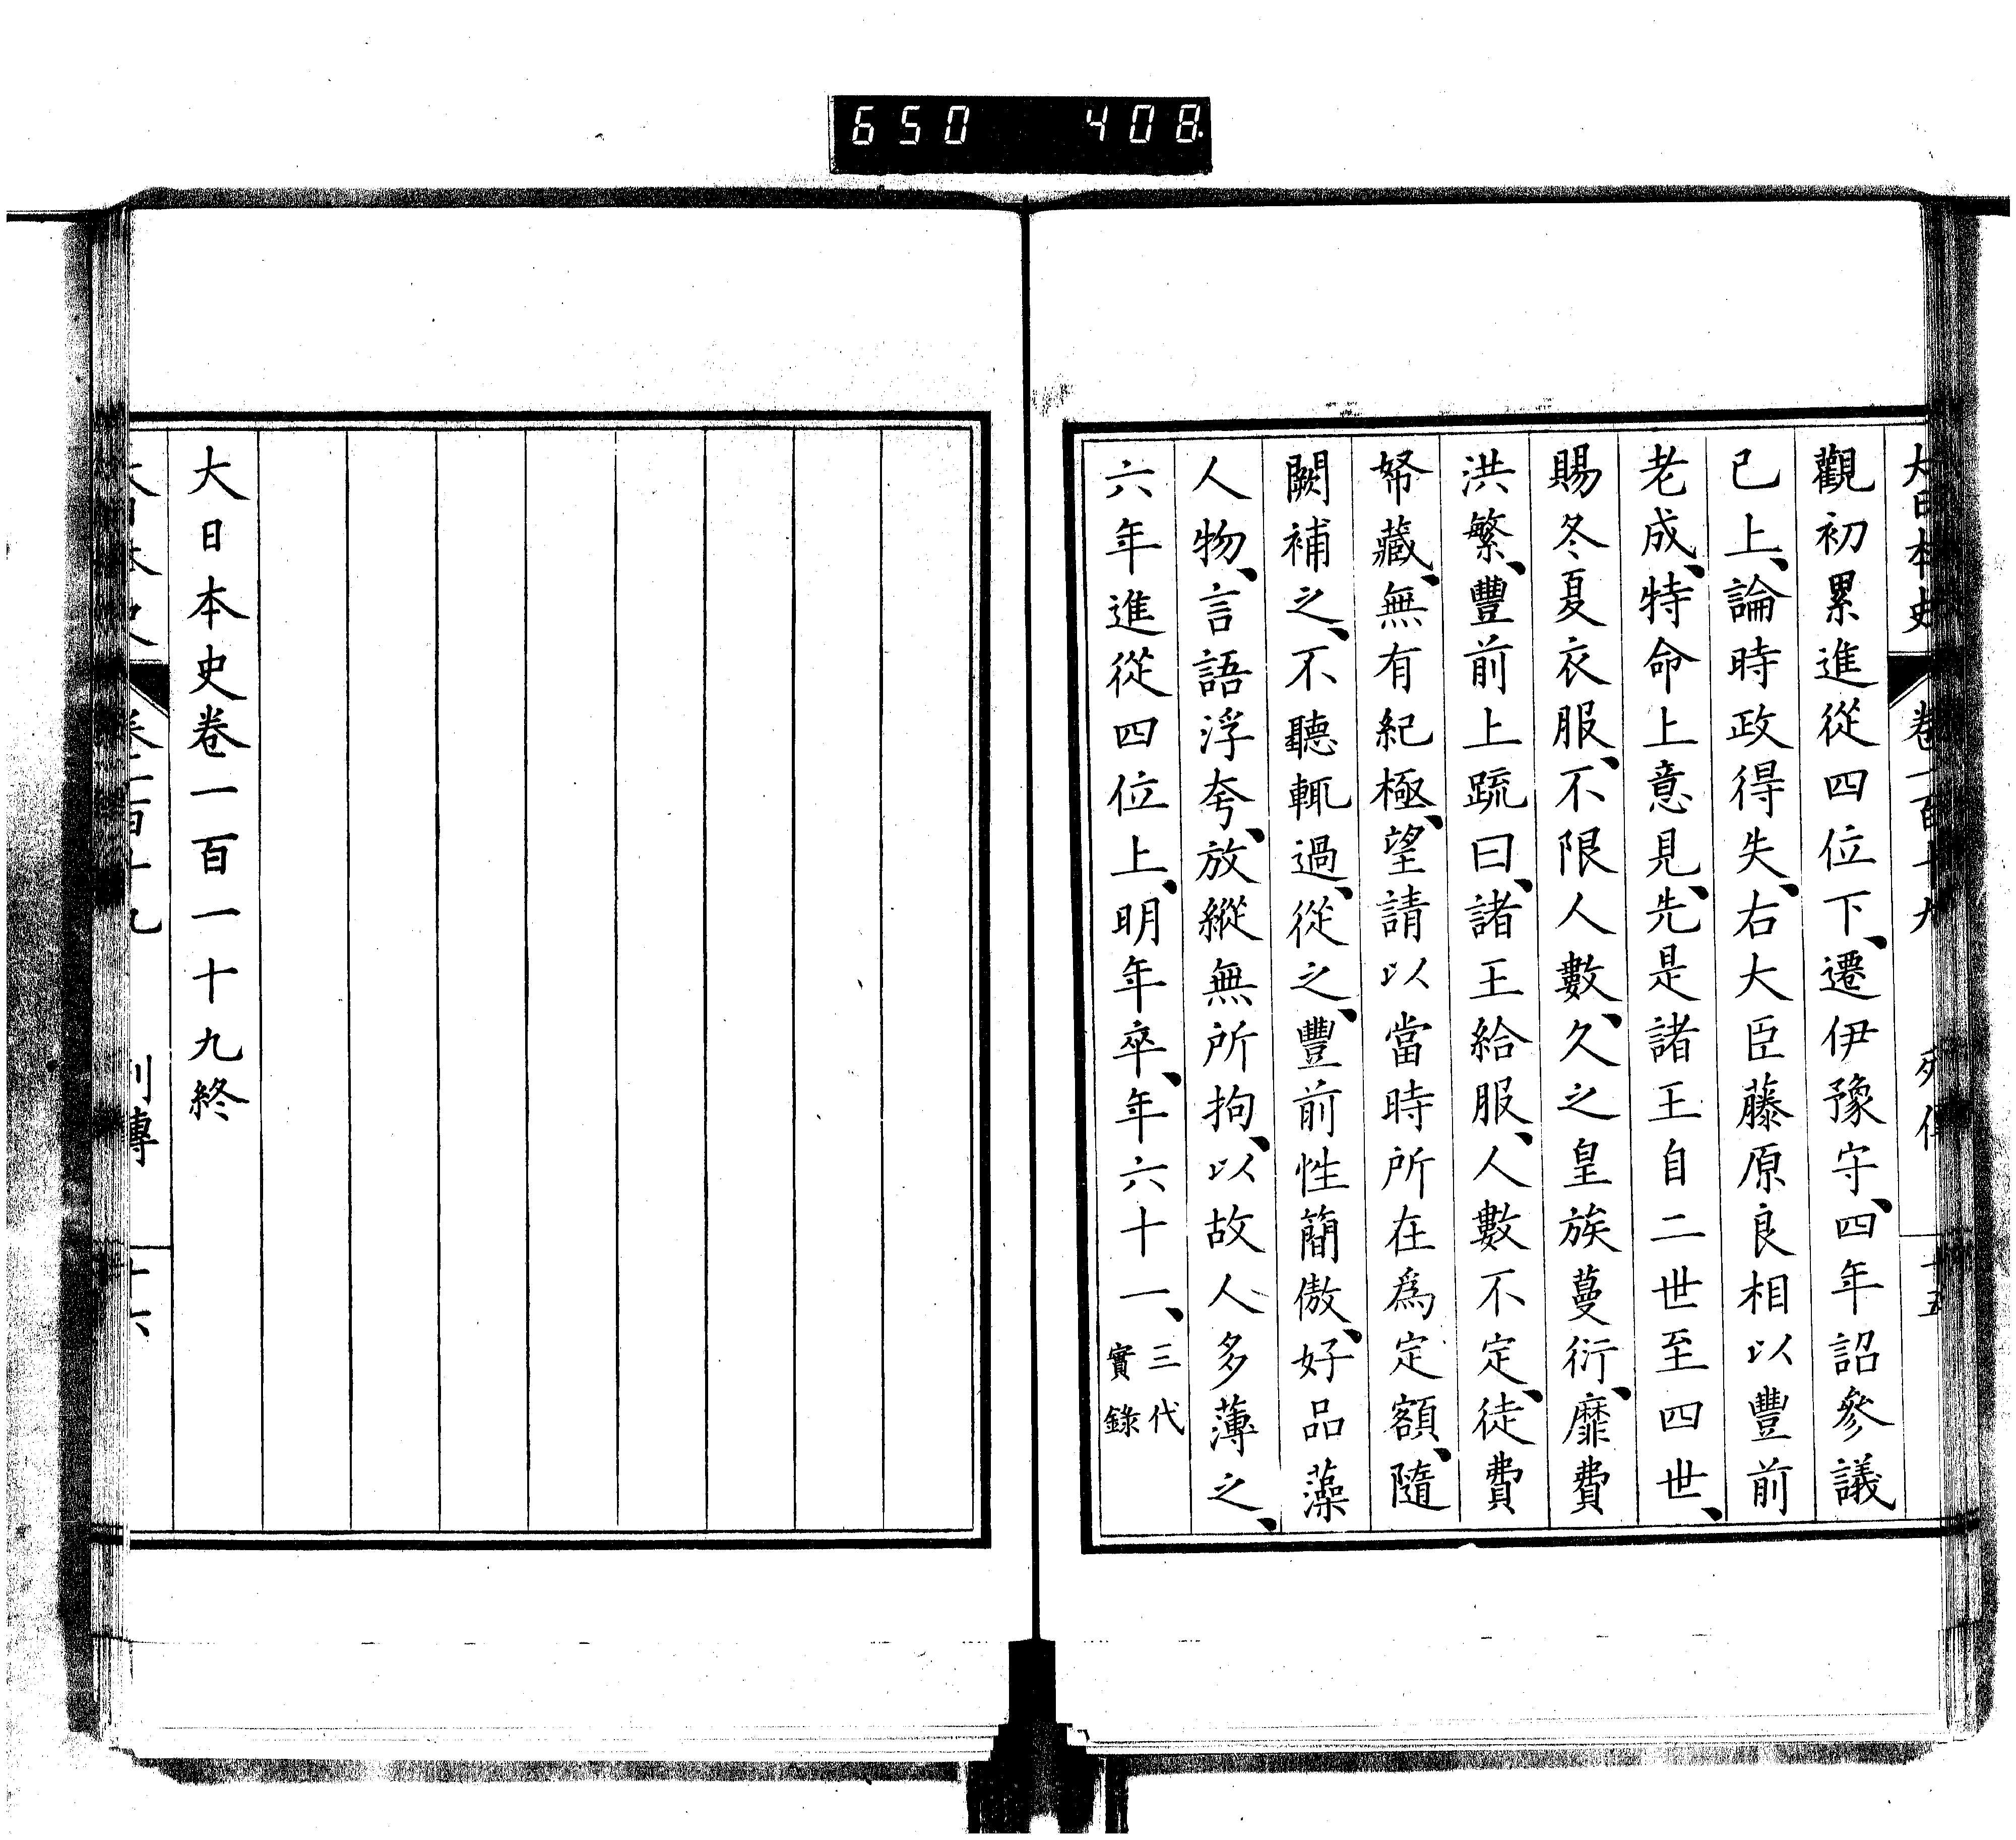 650 408
大日本史 卷一百十九 列傳 十五
觀初累進從四位下、遷伊豫守、四年詔參議
已上、論時政得失、右大臣藤原良相以豐前
老成、特命上意見、先是諸王自二世至四世、
賜冬夏衣服、不限人數、久之皇族蔓衍、靡費
洪繁、豐前上疏曰、諸王給服、人數不定、徒費
帑藏、無有紀極、望請以當時所在爲定額、隨
闕補之、不聽輒過、從之、豐前性簡傲、好品藻
人物、言語浮夸、放縱無所拘、以故人多薄之、
六年進從四位上、明年卒、年六十一、三代
實錄
大日本史卷一百一十九終
大日本史 卷一百十九 列傳 十六